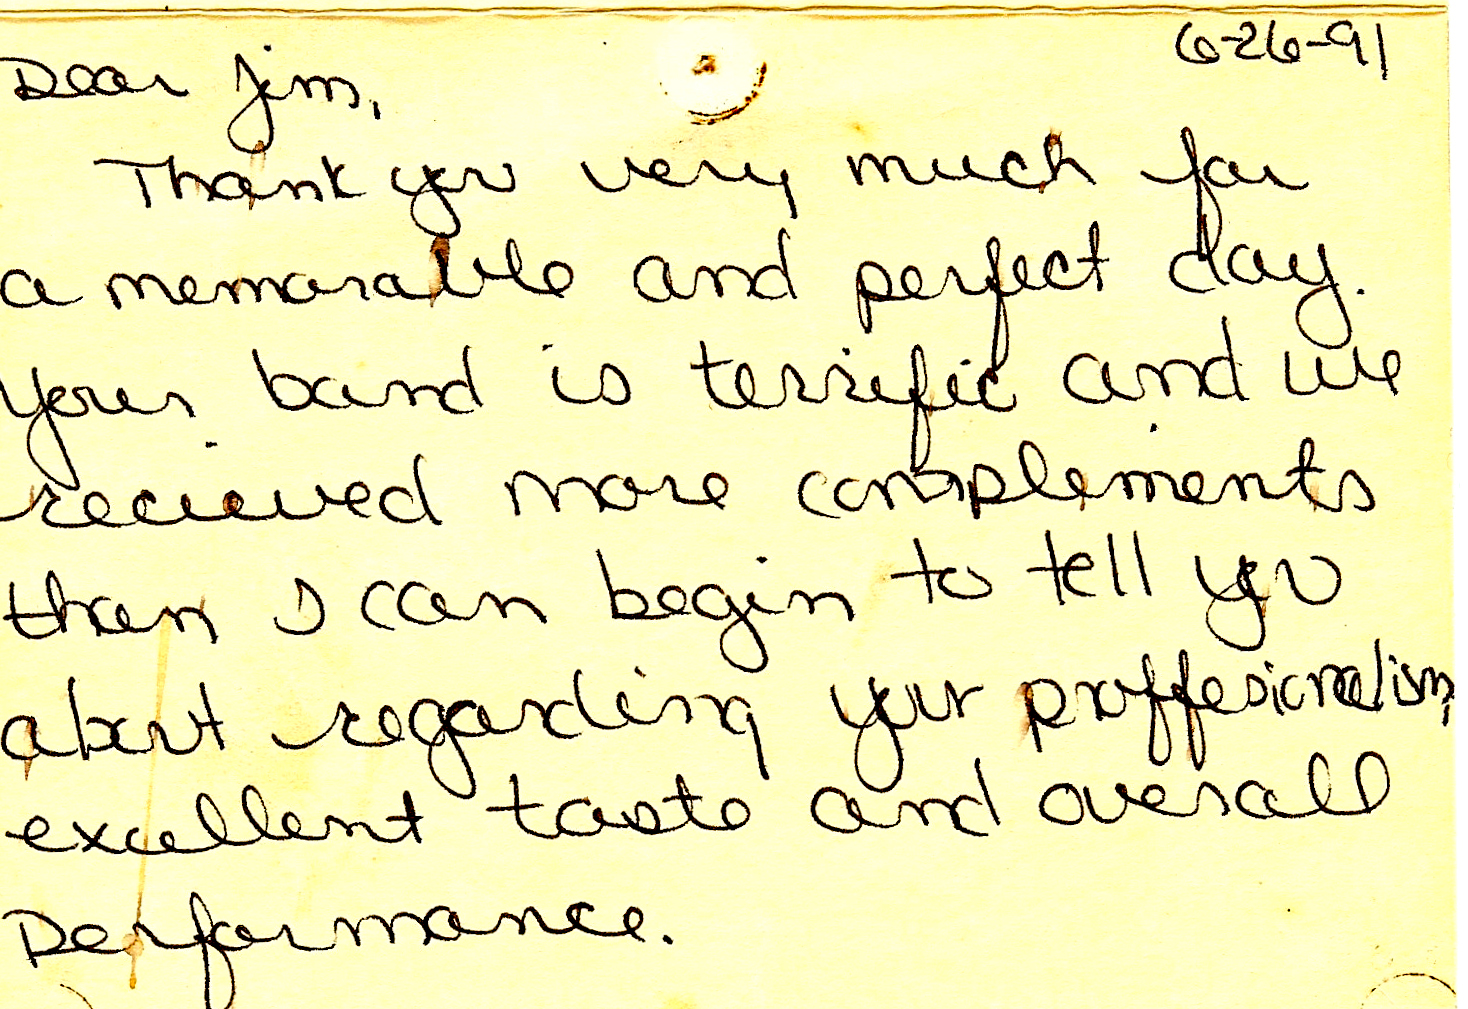 6-26-91
Dear Jim,
Thank you very much for
a memorable and perfect day.
Your band is terrific and we
recieved more complements
than I can begin to tell you
about regarding your proffesionalism,
excellent taste and overall
Performance.